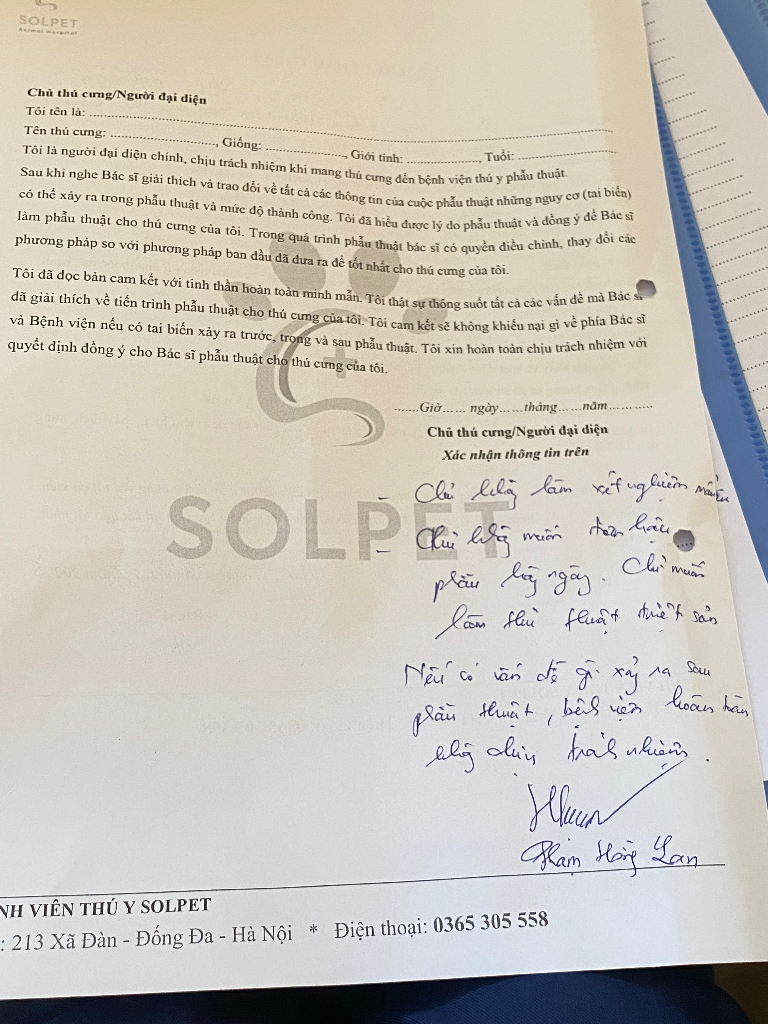 SOLPET
Animal Hospital
Chủ thú cưng/Người đại diện
Tôi tên là: ........................................................................................
Tên thú cưng: ..........................., Giống: ...................., Giới tính: ..................., Tuổi: .........................
Tôi là người đại diện chính, chịu trách nhiệm khi mang thú cưng đến bệnh viện thú y phẫu thuật.
Sau khi nghe Bác sĩ giải thích và trao đổi về tất cả các thông tin của cuộc phẫu thuật những nguy cơ (tai biến)
có thể xảy ra trong phẫu thuật và mức độ thành công. Tôi đã hiểu được lý do phẫu thuật và đồng ý để Bác sĩ
làm phẫu thuật cho thú cưng của tôi. Trong quá trình phẫu thuật bác sĩ có quyền điều chỉnh, thay đổi các
phương pháp so với phương pháp ban đầu đã đưa ra để tốt nhất cho thú cưng của tôi.
Tôi đã đọc bản cam kết với tinh thần hoàn toàn minh mẫn. Tôi thật sự thông suốt tất cả các vấn đề mà Bác sĩ
đã giải thích về tiến trình phẫu thuật cho thú cưng của tôi. Tôi cam kết sẽ không khiếu nại gì về phía Bác sĩ
và Bệnh viện nếu có tai biến xảy ra trước, trong và sau phẫu thuật. Tôi xin hoàn toàn chịu trách nhiệm với
quyết định đồng ý cho Bác sĩ phẫu thuật cho thú cưng của tôi.
.......Giờ...... ngày......tháng......năm...........
Chủ thú cưng/Người đại diện
Xác nhận thông tin trên
SOLPET
- Chủ không làm xét nghiệm máu
- Chủ không muốn
phẫu hàng ngày. Chỉ muốn
làm thủ thuật triệt sản
Nếu có vấn đề gì xảy ra sau
phẫu thuật, bệnh viện hoàn toàn
không chịu trách nhiệm.
Phạm Hồng Lan
NH VIÊN THÚ Y SOLPET
: 213 Xã Đàn - Đống Đa - Hà Nội * Điện thoại: 0365 305 558